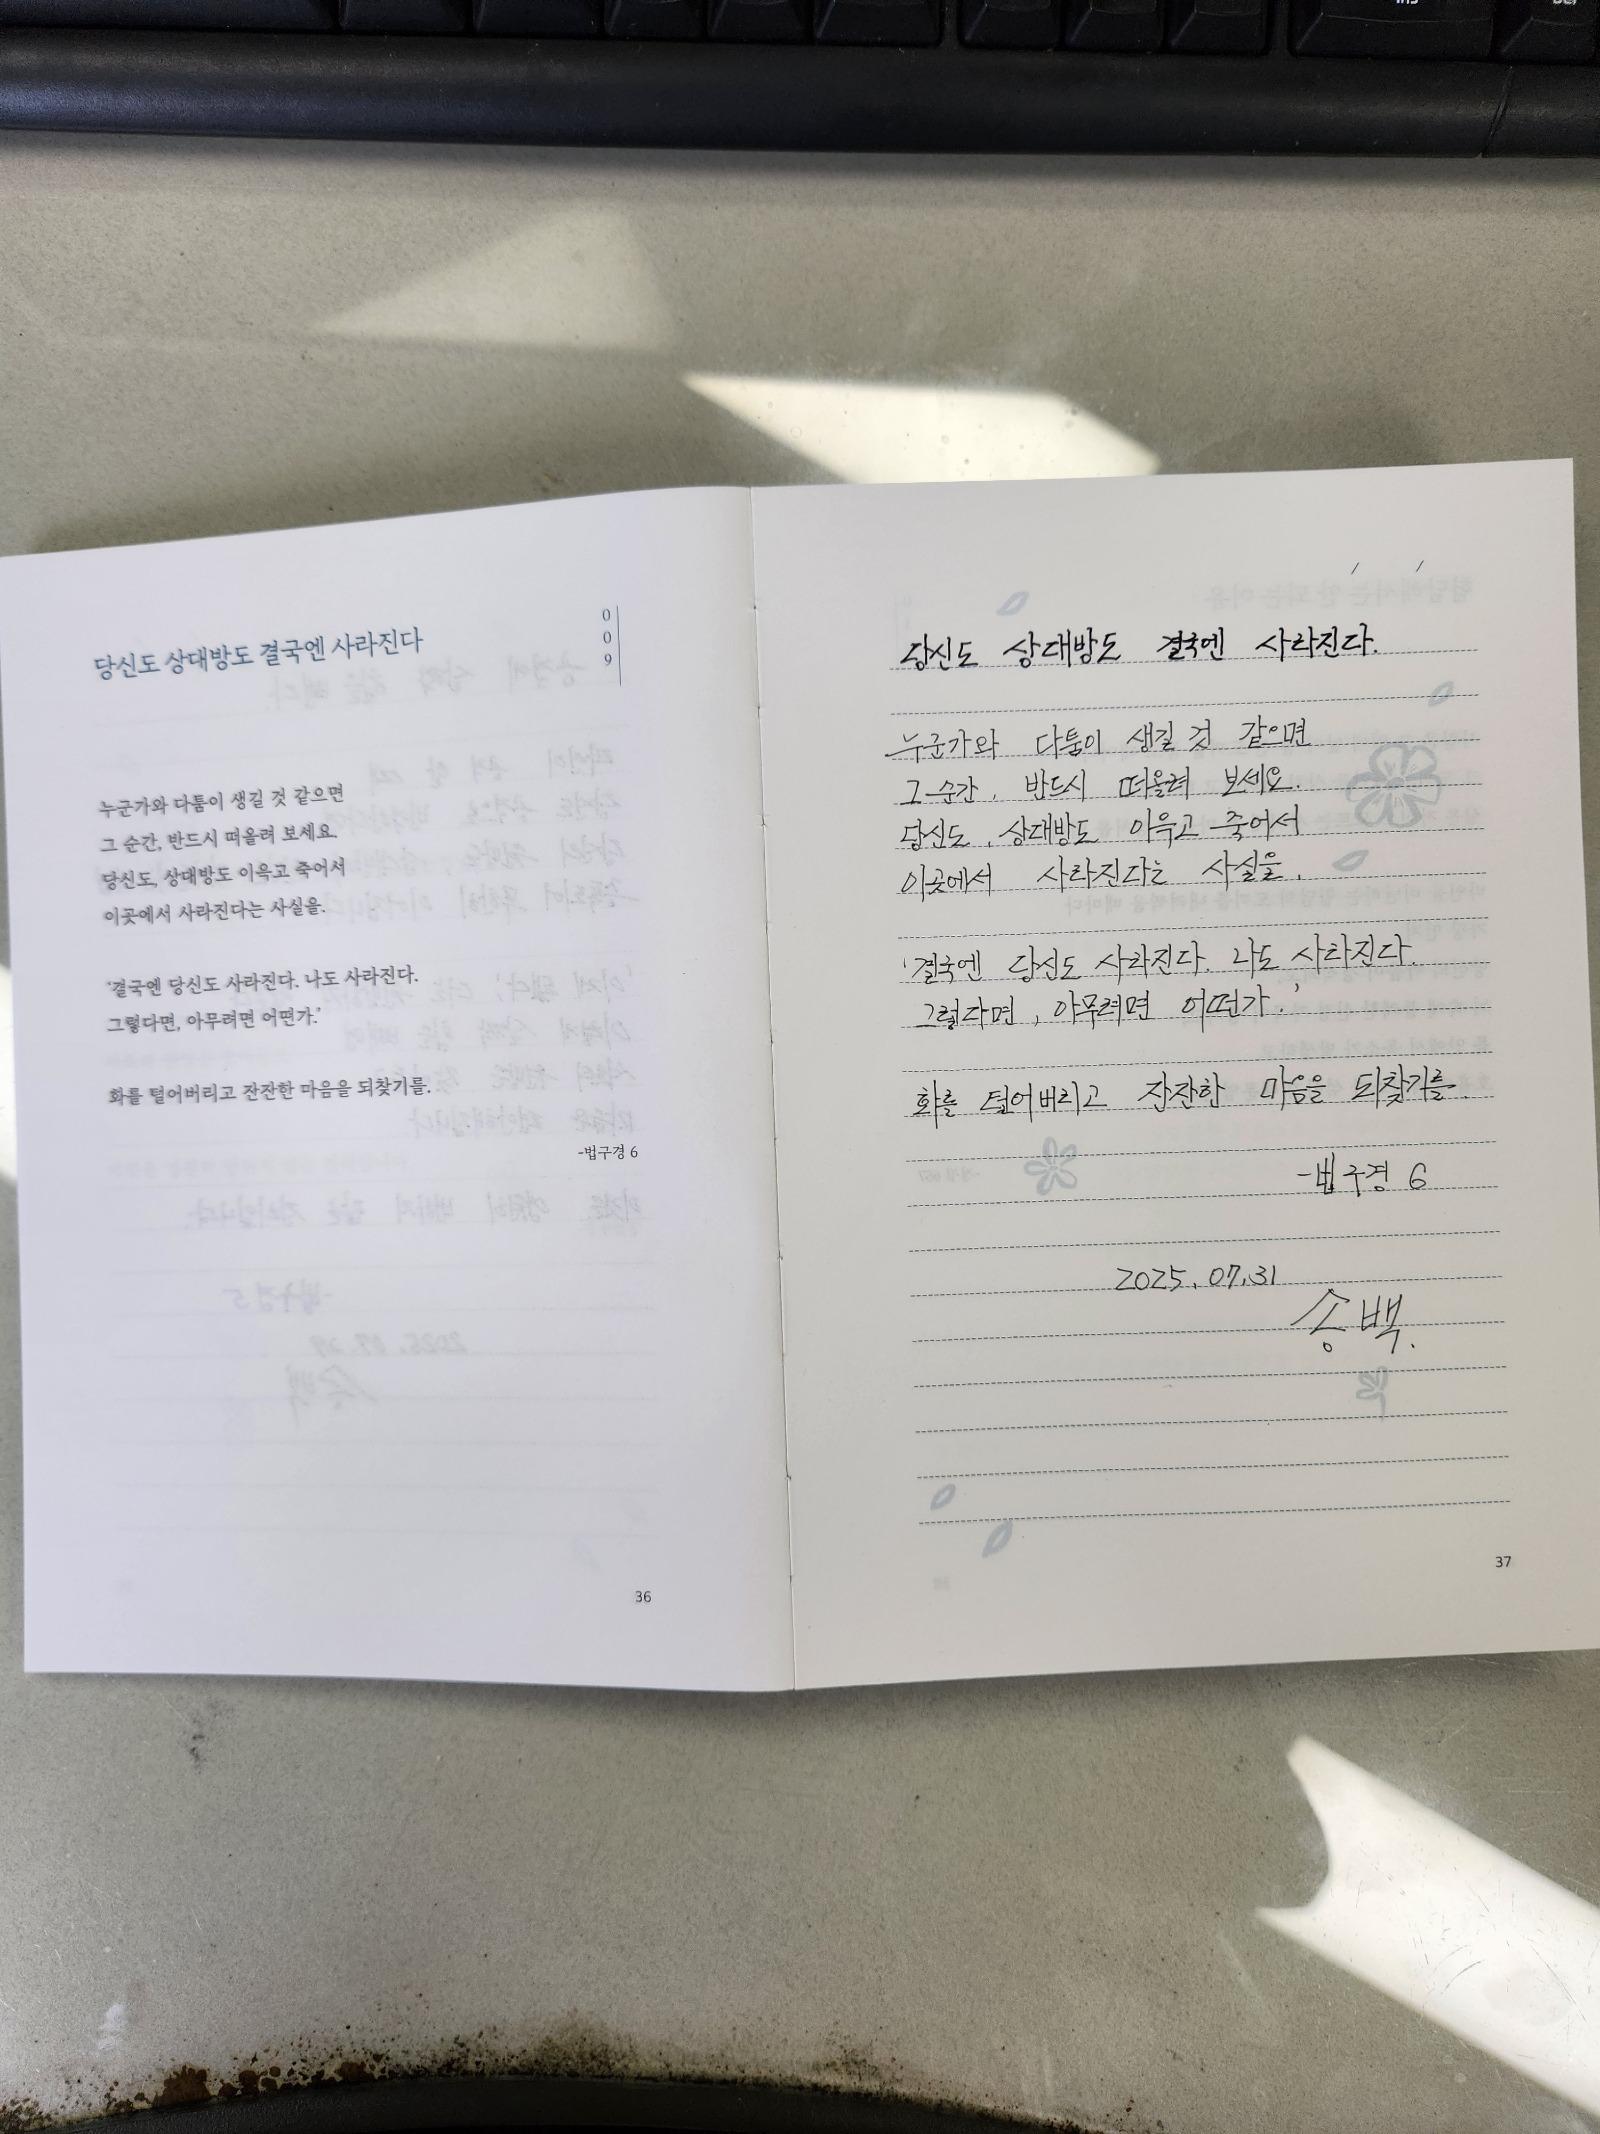 당신도 상대방도 결국엔 사라진다
009
누군가와 다툼이 생길 것 같으면
그 순간, 반드시 떠올려 보세요.
당신도, 상대방도 이윽고 죽어서
이곳에서 사라진다는 사실을.
'결국엔 당신도 사라진다. 나도 사라진다.
그렇다면, 아무려면 어떤가.'
화를 털어버리고 잔잔한 마음을 되찾기를.
-법구경 6
36
당신도 상대방도 결국엔 사라진다.
누군가와 다툼이 생길 것 같으면
그 순간, 반드시 떠올려 보세요.
당신도, 상대방도 이윽고 죽어서
이곳에서 사라진다는 사실을.
'결국엔 당신도 사라진다. 나도 사라진다.
그렇다면, 아무려면 어떤가.'
화를 털어버리고 잔잔한 마음을 되찾기를.
-법구경 6
2025.07.31
송백.
37